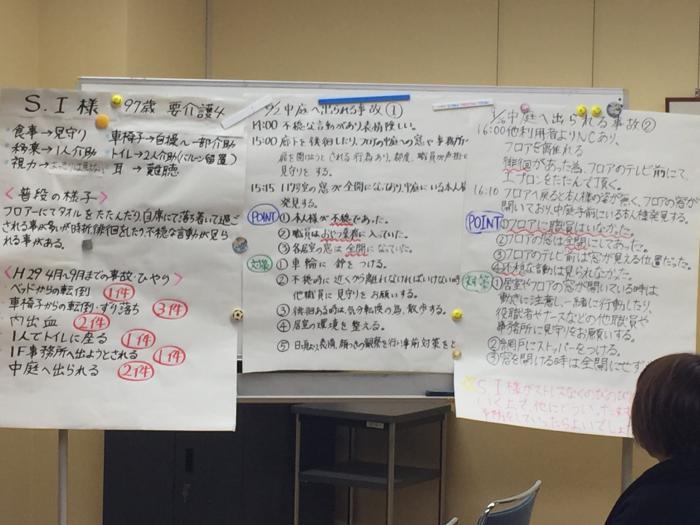 S.I様 97歳 要介護4
・食事→見守り
・移乗→1人介助
・視力→
車椅子→自操へ一部介助
トイレ→2人介助(バルーン留置)
耳→難聴
<普段の様子>
フロアーにてタオルをたたんだり、自席にて落ち着いて過ご
される事が多いが時折徘徊をしたり、不穏な言動が見ら
れる事がある。
<H29 4月〜9月までの事故・ひやり>
ベッドからの転倒 1件
車椅子からの転倒・ずり落ち 3件
内出血 2件
1人でトイレに座る 1件
1F事務所へ出ようとされる 1件
中庭へ出られる 2件
9/2 中庭へ出られる事故①
14:00 不穏な言動があり、表情険しい。
15:00 廊下を徘徊したり、フロアの中庭への窓や事務所
扉を開けようとされる行為あり、都度、職員が声掛け
見守りをする。
15:15 117号室の窓が全開になっており、中庭にいる本人様
発見する。
POINT
①本人様が不穏であった。
②職員はおやつ業務に入っていた。
③各居室の窓は全開になっていた。
対策
①車輪に鈴をつける。
②不穏時に近くから離れなければいけない時
他職員に見守りをお願いする。
③徘徊ある時は、気分転換の為、散歩する。
④居室の環境を整える。
⑤日頃より表情、顔つきの観察を行い事前対策をと
中庭へ出られる事故②
16:00 他利用者よりNCあり、
フロアを離れる
徘徊があった為、フロアのテレビ前にて、
エプロンをたたんで頂く。
16:10 フロアへ戻ると本人様の姿が無く、フロアの窓が
開いており、中庭手前にいる本人様発見する。
POINT
①フロアに職員はいなかった。
②フロアの窓は全開にしてあった。
③フロアのテレビ前は窓が見える位置だった。
④不穏な言動は見られなかった。
対策
①居室やフロアの窓が開いている時は、
動きに注意し一緒に行動したり、
役職者やナースなどの他職員や
事務所に見守りをお願いする。
②網戸にストッパーをつける。
③窓を開ける時は全開にせず
S.I様がストレスなく
いく上で、他にどういった